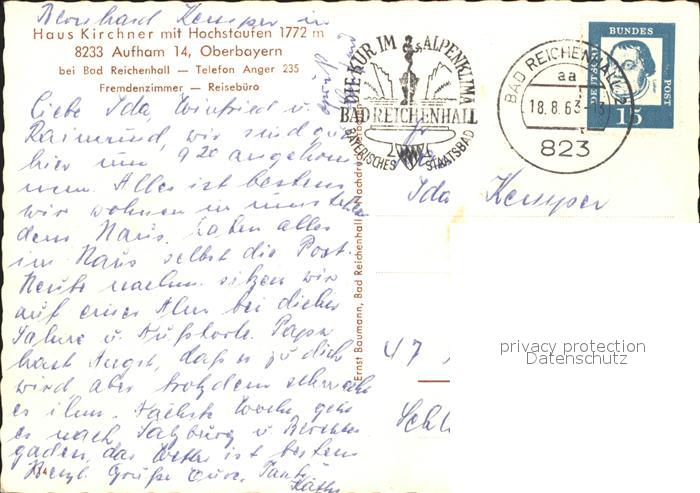 Bernhard Kemper in
Haus Kirchner mit Hochstaufen 1772 m
8233 Aufham 14, Oberbayern
bei Bad Reichenhall — Telefon Anger 235
Fremdenzimmer — Reisebüro
Liebe Ida, Winfried u.
Raimund, wir sind gut
hier um 9²⁰ angekom
men. Alles ist bestens
wir wohnen in
dem Haus. haben alles
im Haus selbst die Post.
Heute nachm. sitzen wir
auf einer Alm bei dicker
Sahne u. Nußtorte. Papa
hat Angst, daß er zu dick
wird aber trotzdem schmeckt
es ihm. Nächste Woche geht
es nach Salzburg u Berchtes
gaden, das Wetter ist bestens
Herzl. Grüße Eure Tante
Käthe
Ernst Baumann, Bad Reichenhall
Nachdruck verboten
DIE KUR IM ALPENKLIMA
BAD REICHENHALL
BAYERISCHES STAATSBAD
BAD REICHENHALL 2
aa
18.8.63-13
823
DEUTSCHE
BUNDES
POST
15
Ida Kemper
47
Schl
privacy protection
Datenschutz